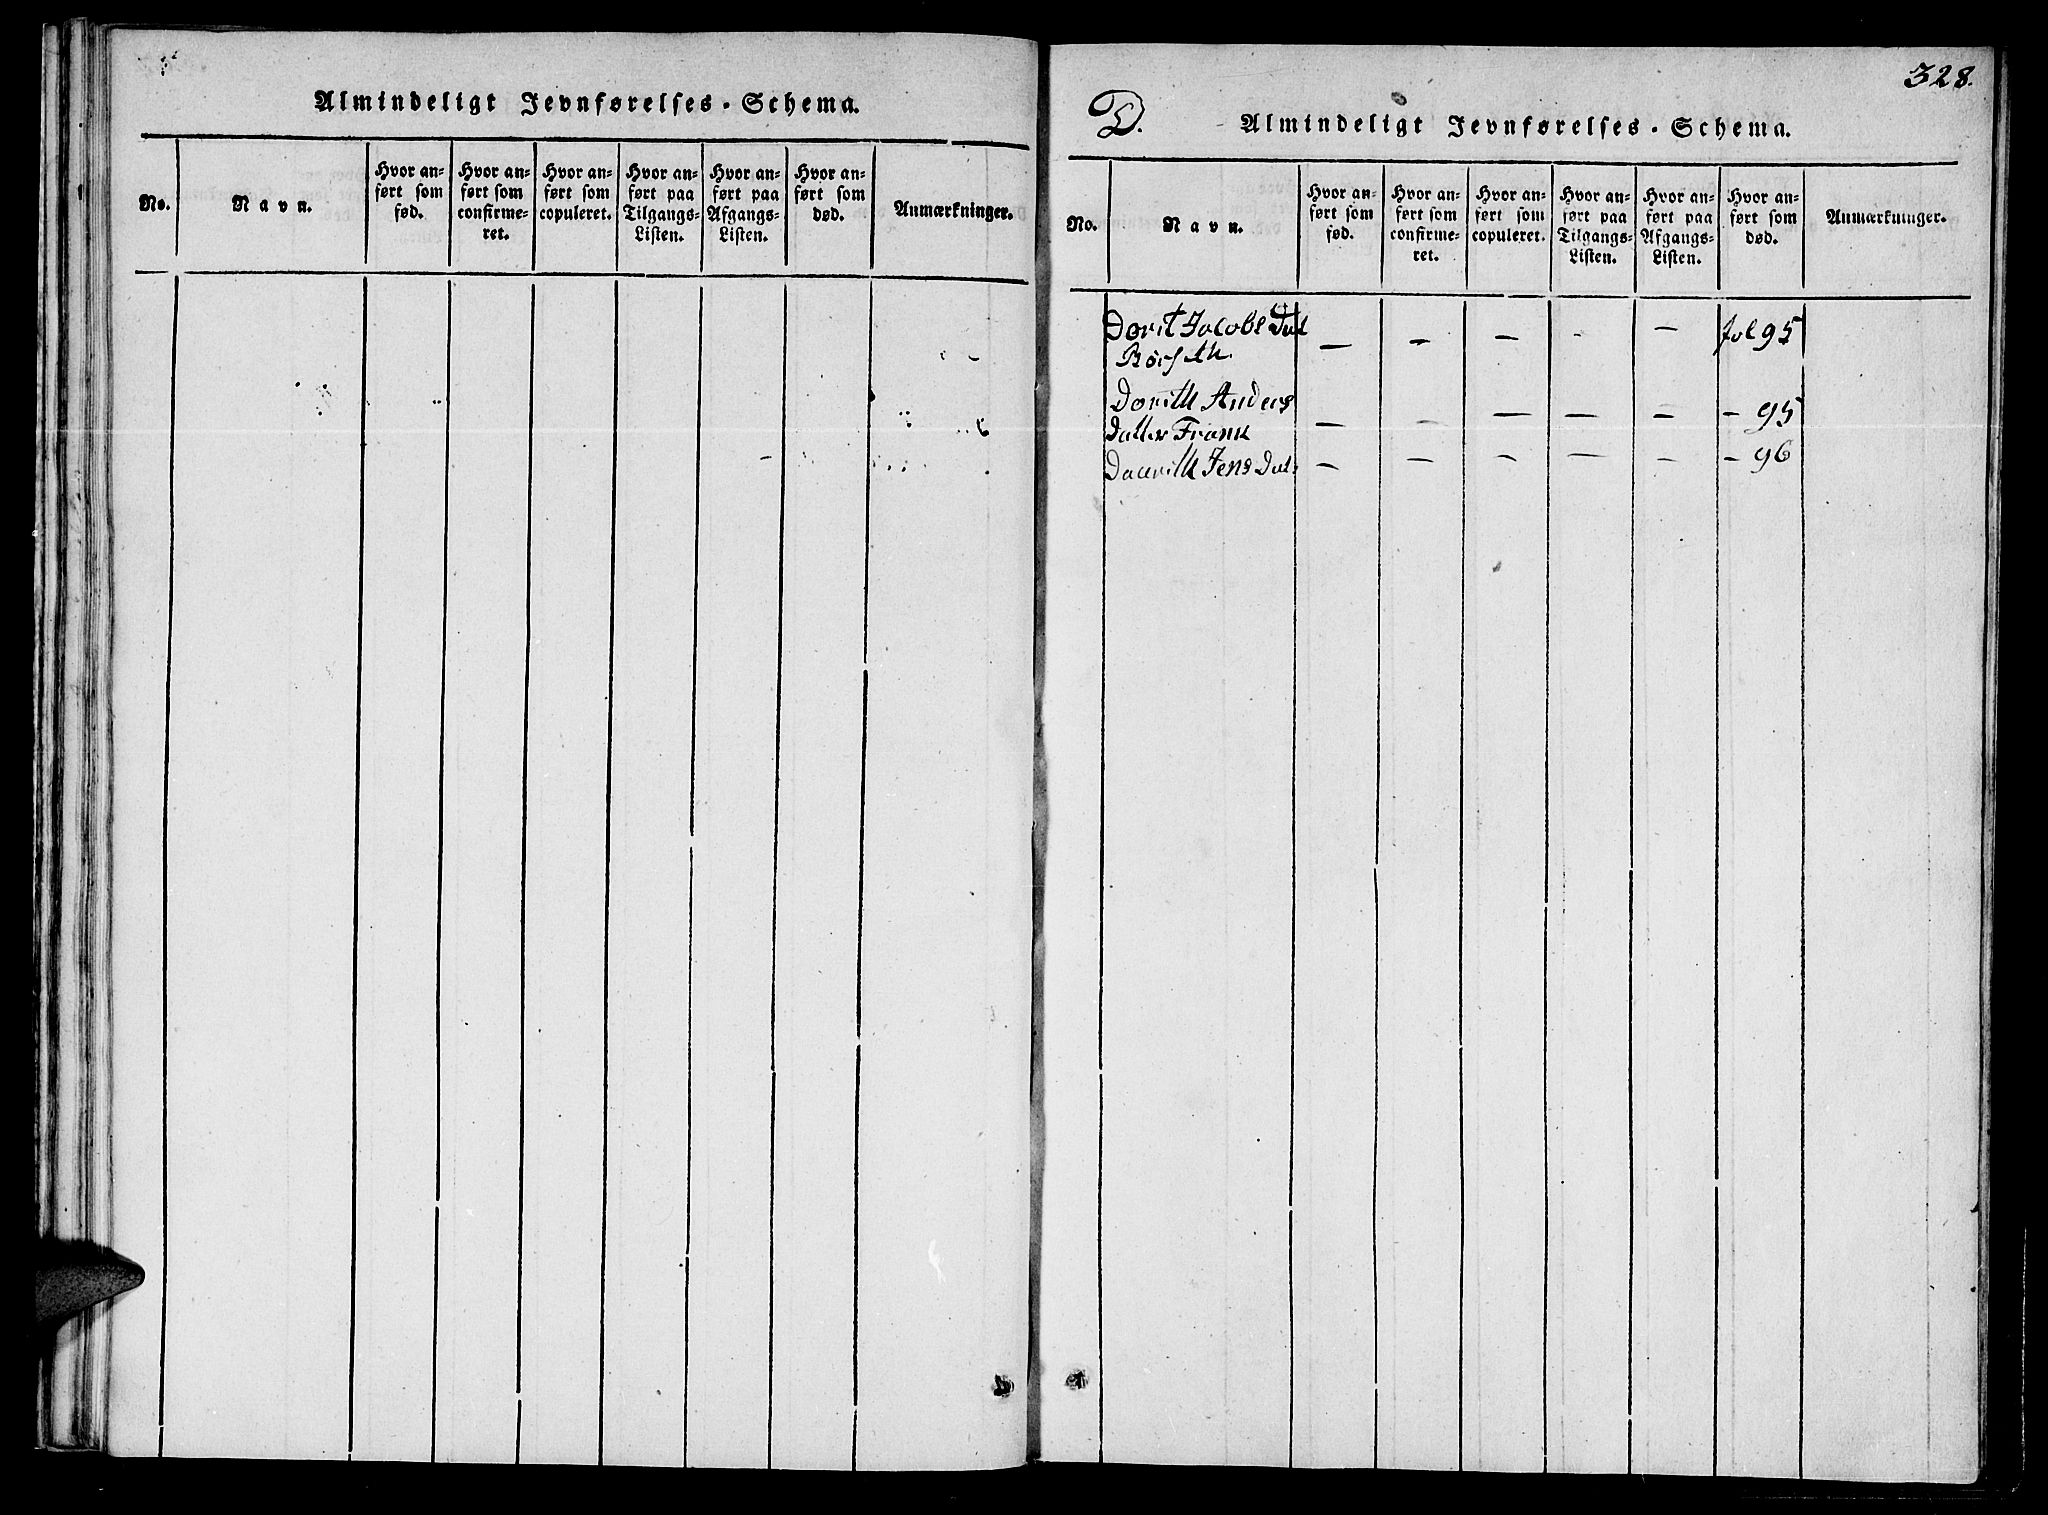 Almindeligt Jevnførelses-Schema.
No.
Navn.
Hvor an-
ført som
fød.
Hvor an-
ført som
confirme-
ret.
Hvor an-
ført som
copuleret.
Hvor an-
ført paa
Tilgangs-
Listen.
Hvor an-
ført paa
Afgangs-
Listen.
Hvor an-
ført som
død.
Anmærkninger.
328.
D.
Almindeligt Jevnførelses-Schema.
No.
Navn.
Hvor an-
ført som
fød.
Hvor an-
ført som
confirme-
ret.
Hvor an-
ført som
copuleret.
Hvor an-
ført paa
Tilgangs-
Listen.
Hvor an-
ført paa
Afgangs-
Listen.
Hvor an-
ført som
død.
Anmærkninger.
Dorit Jacobs Dat — — — - — fol 95
Dorith Anders
Datter Frank — — — — — - 95
Jens Dat: — — — — — - 96